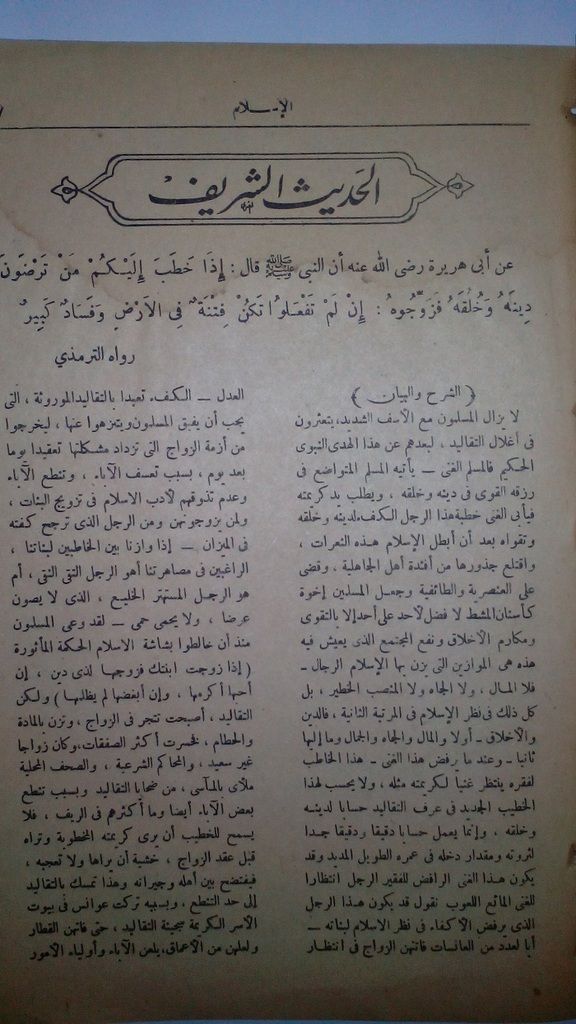 الإسلام
الحديث الشريف
عن أبى هريرة رضى الله عنه أن النبى ﷺ قال : إِذَا خَطَبَ إِلَيْكُمْ مَنْ تَرْضَوْنَ
دِينَهُ وَخُلُقَهُ فَزَوِّجُوهُ : إِنْ لَمْ تَفْعَلُوا تَكُنْ فِتْنَةٌ فِى الأَرْضِ وَفَسَادٌ كَبِيرٌ
رواه الترمذي
( الشرح والبيان )
لا يزال المسلمون مع الأسف الشديد، يتعثرون
فى أغلال التقاليد ، لبعدهم عن هذا الهدى النبوى
الحكيم فالمسلم الغنى — يأتيه المسلم المتواضع فى
رزقه القوى فى دينه وخلقه ، ويطلب يد كريمته
فيأبى الغنى خطبة هذا الرجل الكفء لدينه وخلقه
وتقواه بعد أن أبطل الإسلام هذه النعرات ،
واقتلع جذورها من أفئدة أهل الجاهلية ، وقضى
على العنصرية والطائفية وجعل المسلمين إخوة
كأسنان المشط لا فضل لأحد على أحد إلا بالتقوى
ومكارم الأخلاق ونفع المجتمع الذى يعيش فيه
هذه هى الموازين التى يزن بها الإسلام الرجال -
فلا المال ، ولا الجاه ولا المنصب الخطير ، بل
كل ذلك فى نظر الإسلام فى المرتبة الثانية ، فالدين
والأخلاق - أولا والمال والجاه والجمال وما إليها
ثانيا - وعند ما يرفض هذا الغنى - هذا الخاطب
لفقره ينتظر غنيا لكريمته مثله ، ولا يحسب لهذا
الخطيب الجديد فى عرف التقاليد حسابا لدينه
وخلقه ، وإنما يعمل حسابا دقيقا ودقيقا جدا
لثروته ومقدار دخله فى عمره الطويل المديد وقد
يكون هذا الغنى الرافض للفقير الرجل انتظارا
للغنى المائع اللعوب نقول قد يكون هذا الرجل
الذى يرفض الأكفاء فى نظر الاسلام لبناته —
أبا لعدد من العانسات فاتهن الزواج فى انتظار
العدل — الكفء تعبدا بالتقاليد الموروثة ، التى
يجب أن يفيق المسلمون ويتنزهوا عنها ، ليخرجوا
من أزمة الزواج التى تزداد مشكلتها تعقيدا يوما
بعد يوم ، بسبب تعسف الآباء ، وتنطع الآباء
وعدم تذوقهم لأدب الاسلام فى تزويج البنات ،
ولمن يزوجونهن ومن الرجل الذى ترجح كفته
فى الميزان — إذا وازنا بين الخاطبين لبناتنا ،
الراغبين فى مصاهرتنا أهو الرجل التقى النقى ، أم
هو الرجل المستهتر الخليع ، الذى لا يصون
عرضا ، ولا يحمى حمى — لقد وعى المسلمون
منذ أن خالطوا بشاشة الاسلام الحكمة المأثورة
( إذا زوجت ابنتك فزوجها لذى دين ، إن
أحبها أكرمها ، وإن أبغضها لم يظلمها ) ولكن
التقاليد ، أصبحت تتجر فى الزواج ، وتزن بالمادة
والحطام ، فخسرت أكثر الصفقات، وكان زواجا
غير سعيد ، والمحاكم الشرعية ، والصحف المحلية
ملأى بالمآسى ، من ضحايا التقاليد وبسبب تنطع
بعض الآباء أيضا وما أكثرهم فى الريف ، فلا
يسمح للخطيب أن يرى كريمته المخطوبة وتراه
قبل عقد الزواج ، خشية أن يراها ولا تعجبه ،
فيفتضح بين أهله وجيرانه وهذا تمسك بالتقاليد
إلى حد التنطع ، وبسببه تركت عوانس فى بيوت
الأسر الكريمة سجينة التقاليد ، حتى فاتهن القطار
ولعلهن من الأعماق، يلعن الآباء وأولياء الأمور